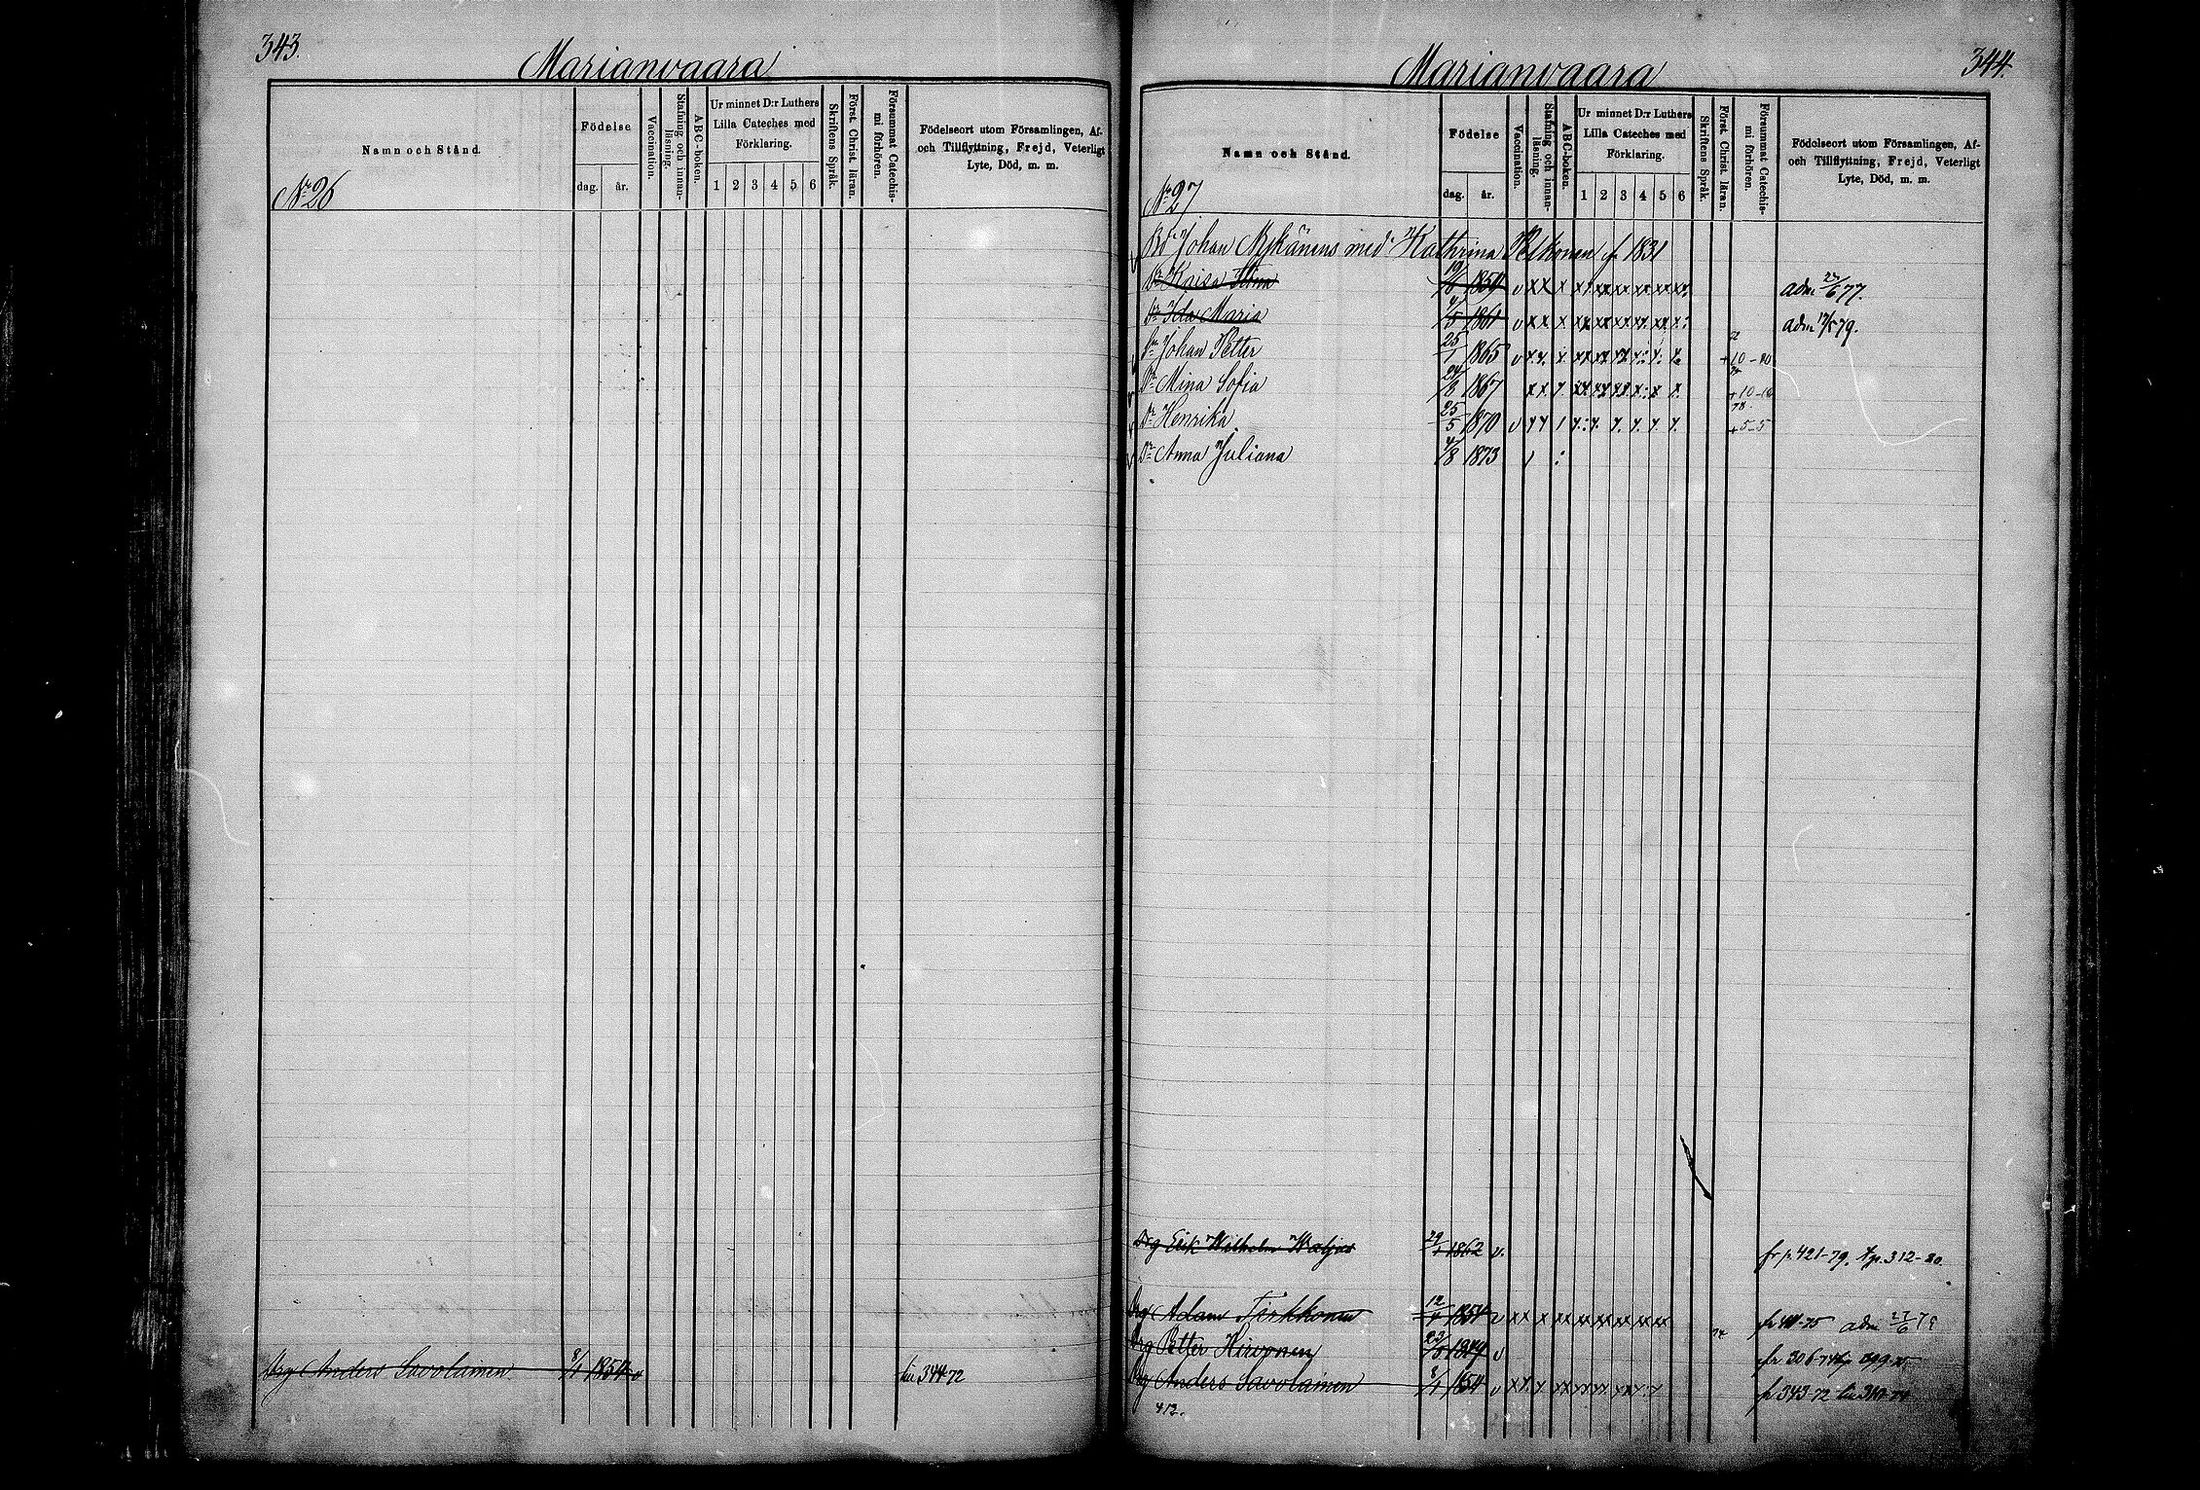 343.
Marianvaara
Namn och Stånd.
Födelse
dag. år.
Vaccination.
Stafning och innanläsning.
ABC-boken.
Ur minnet D:r Luthers Lilla Cateches med Förklaring.
1 2 3 4 5 6
Skriftens Språk.
Först. Christ. läran.
Försummat Catechismi förhören.
Födelseort utom Församlingen, Af- och Tillflyttning, Frejd, Veterligt Lyte, Död, m. m.
No 26
Drg Anders Savolainen 8/1 1854 v 344 72
344.
Marianvaara
Namn och Stånd.
Födelse
dag. år.
Vaccination.
Stafning och innanläsning.
ABC-boken.
Ur minnet D:r Luthers Lilla Cateches med Förklaring.
1 2 3 4 5 6
Skriftens Språk.
Först. Christ. läran.
Försummat Catechismi förhören.
Födelseort utom Församlingen, Af- och Tillflyttning, Frejd, Veterligt Lyte, Död, m. m.
No 27
Bd Johan Nykänens med Kathrina f 1831
Dr Kaisa v x x x adm 6 77.
Dr Ida Maria 5 1861 v x x x adm 79.
Sn Johan Petter 25/1 1865 v +10-20
Dr Mina Sofia 24/8 1867 +10-10
Dr Henrika 25/5 1870 v +5-5
Dr Anna Juliana 4/8 1873
Drg Erik Wilhelm 29 1862 v. fr p. 421-79. t p. 312-80.
Drg Adam 12 1854 v x x x adm 6
Drg Petter Hirvonen 22 v fr 306-
Drg Anders Savolainen 8/1 1854 v fr 343-72
412.